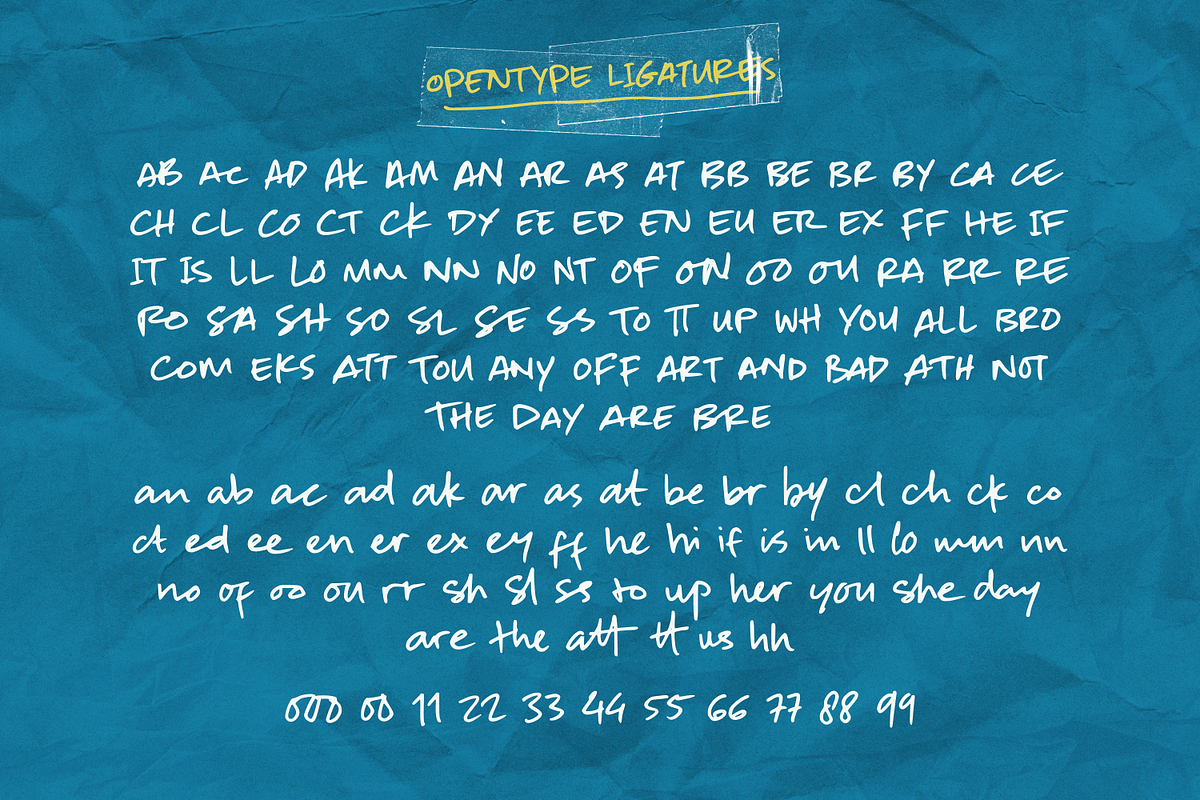 OPENTYPE LIGATURES
AB AC AD AK AM AN AR AS AT BB BE BR BY CA CE
CH CL CO CT CK DY EE ED EN EU ER EX FF HE IF
IT IS LL LO MM NN NO NT OF ON OO OU RA RR RE
RO SA SH SO SL SE SS TO TT UP WH YOU ALL BRO
COM EKS ATT TOU ANY OFF ART AND BAD ATH NOT
THE DAY ARE BRE
an ab ac ad ak ar as at be br by cl ch ck co
ct ed ee en er ex ey ff he hi if is in ll lo mm nn
no of oo ou rr sh sl ss to up her you she day
are the att tt us hh
000 00 11 22 33 44 55 66 77 88 99